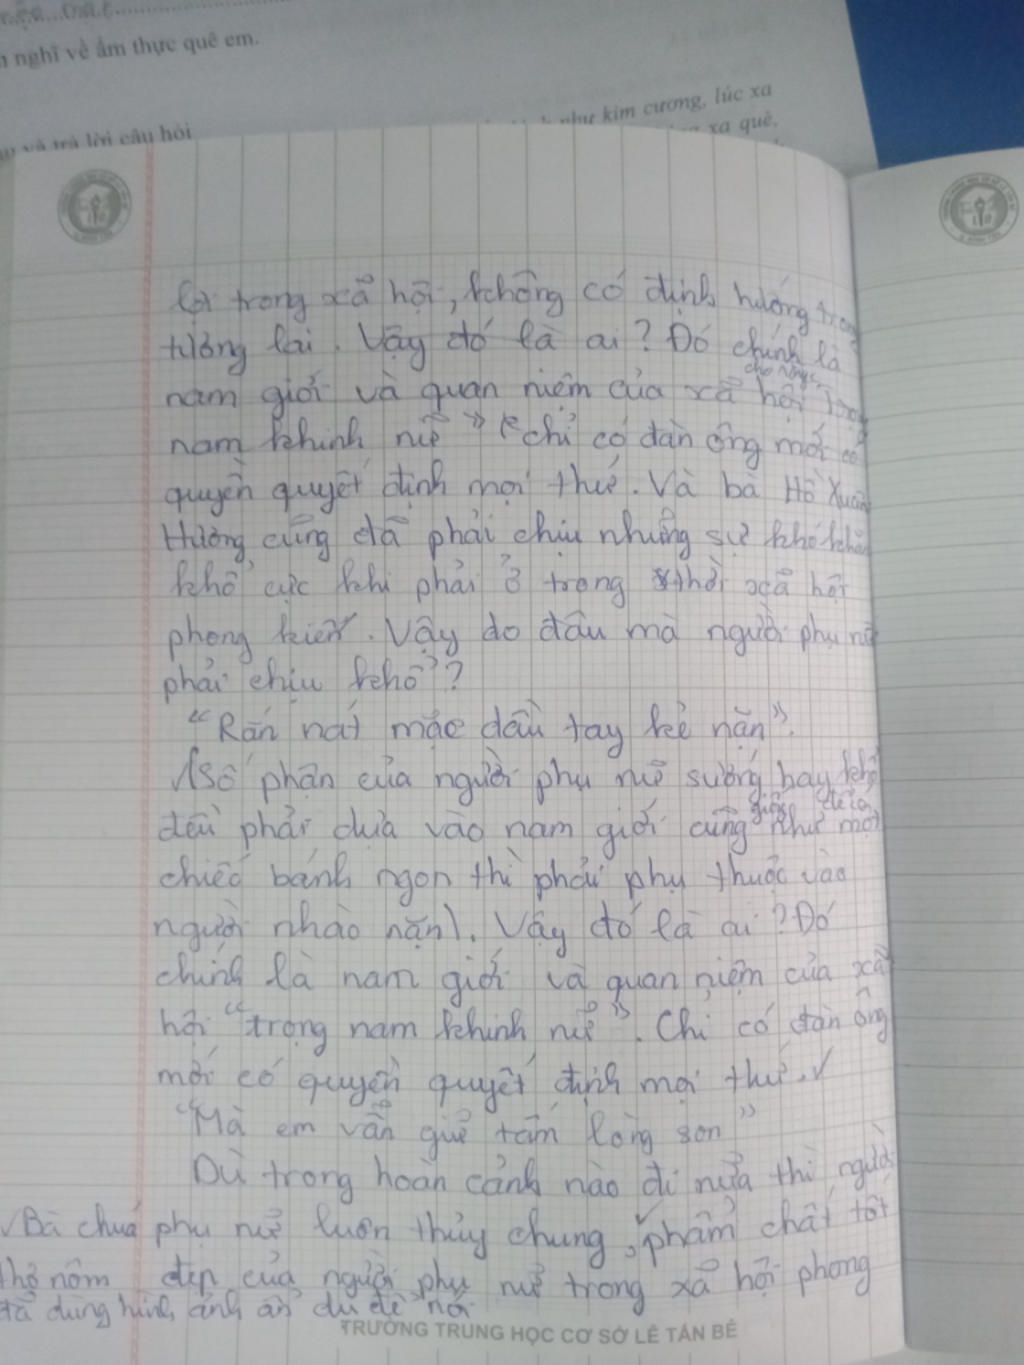 n nghĩ về ẩm thực quê em.
và trả lời câu hỏi
như kim cương, lúc xa
xa quê,
trong xã hội, không có định hướng trong
tương lai. Vậy đó là ai? Đó chính là
nam giới và quan niệm của xã hội
nam khinh nữ" chỉ có đàn ông mới có
quyền quyết định mọi thứ. Và bà Hồ Xuân
Hương cũng đã phải chịu những sự khó khăn
khổ cực khi phải ở trong thời xã hội
phong kiến. Vậy do đâu mà người phụ nữ
phải chịu khổ?
"Rắn nát mặc dầu tay kẻ nặn".
(Số phận của người phụ nữ sướng hay khổ
đều phải dựa vào nam giới cũng giống như một
chiếc bánh ngon thì phải phụ thuộc vào
người nhào nặn). Vậy đó là ai? Đó
chính là nam giới và quan niệm của xã
hội "trọng nam khinh nữ". Chỉ có đàn ông
mới có quyền quyết định mọi thứ.
"Mà em vẫn giữ tấm lòng son"
Dù trong hoàn cảnh nào đi nữa thì người
phụ nữ luôn thủy chung, phẩm chất tốt
đẹp của người phụ nữ trong xã hội phong
Bà chúa
thơ nôm
đã dùng hình ảnh ẩn dụ để nói
TRƯỜNG TRUNG HỌC CƠ SỞ LÊ TẤN BÊ